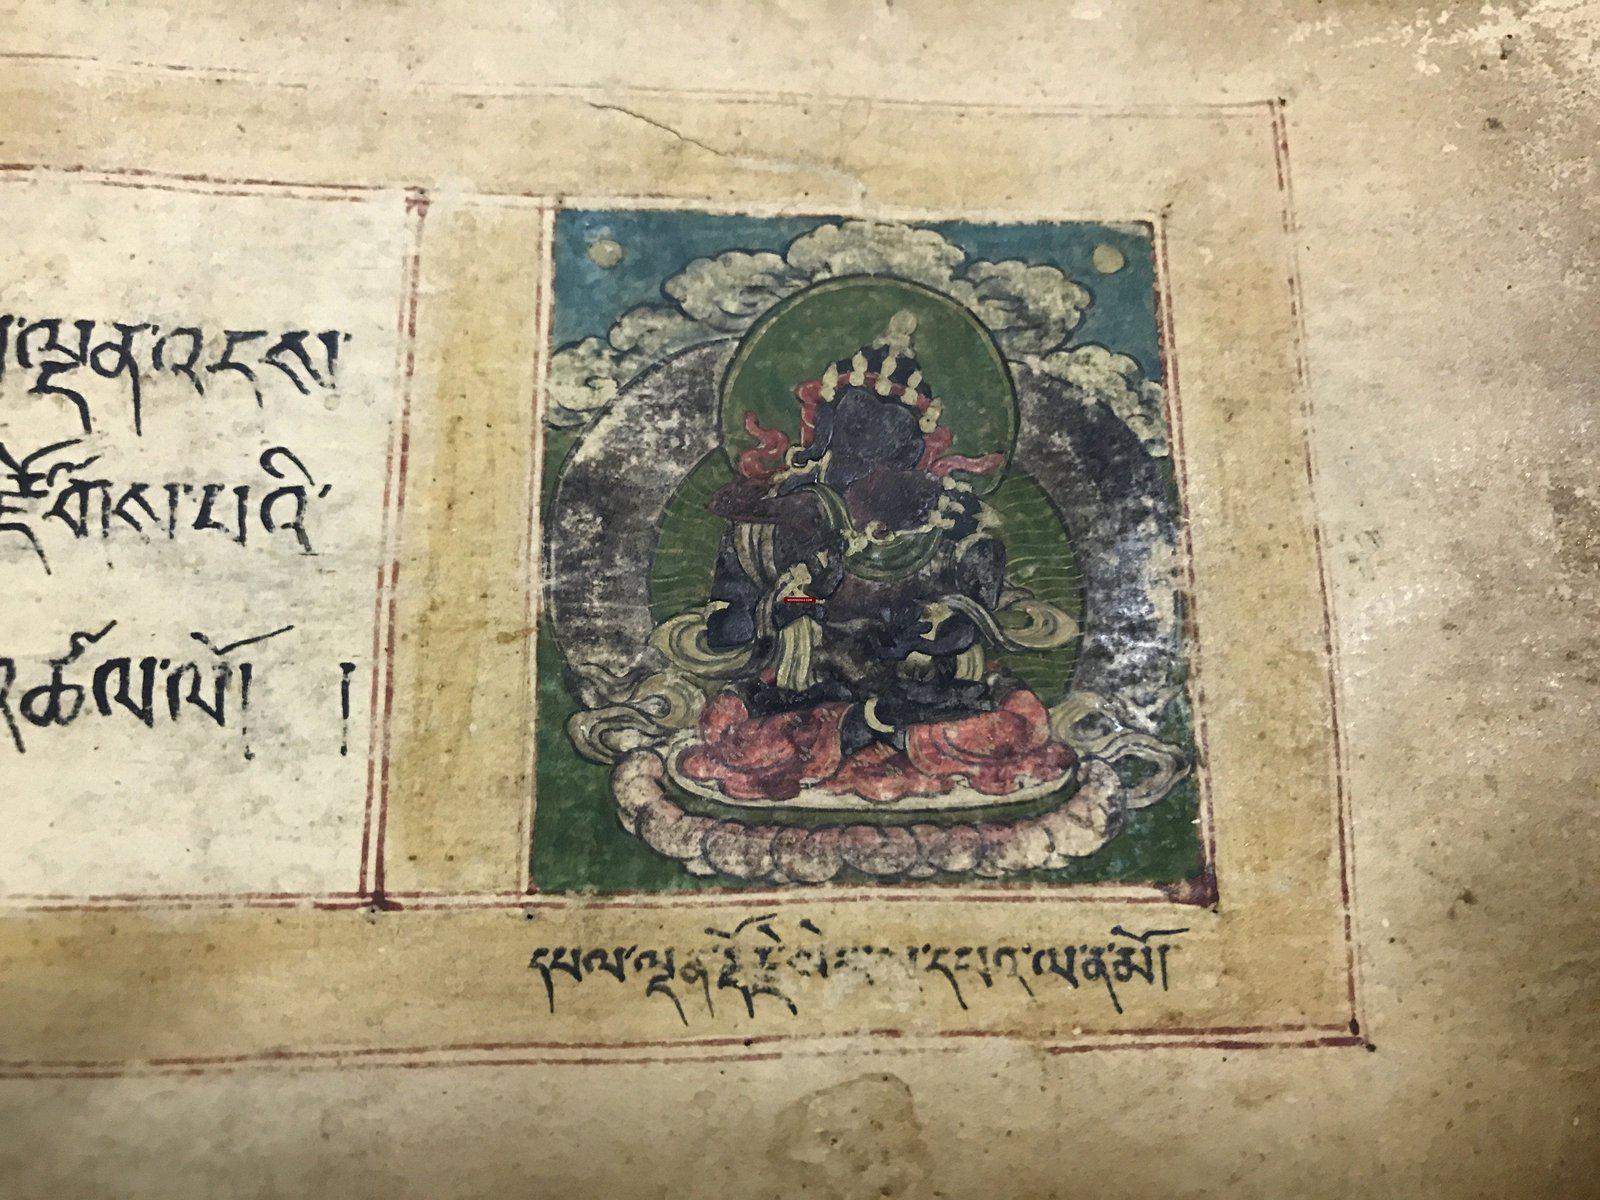 ལྡན་འདས།
རྫོགས་པའི་
འཚལ་ལོ། །
དཔལ་ལྡན་རྡོ་རྗེ་སེམས་དཔའ་ལ་ན་མོ།